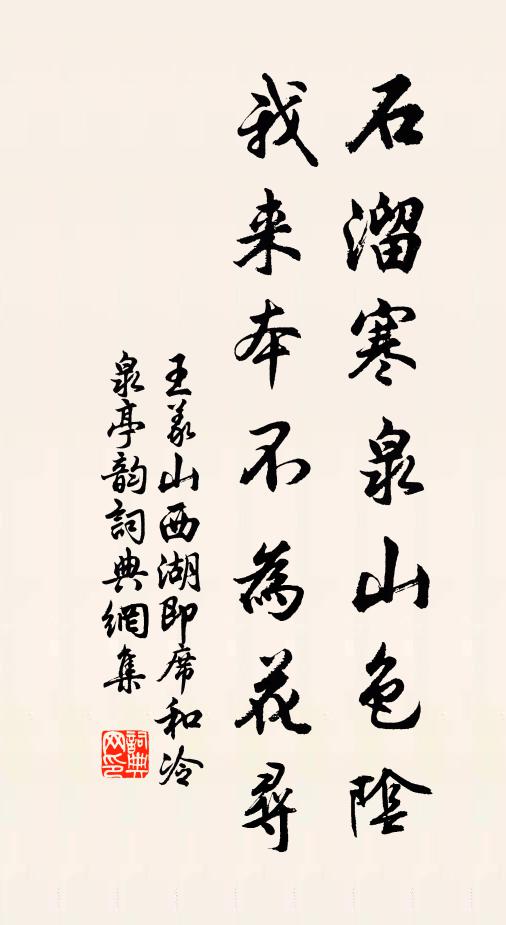 石溜寒泉山色陰
我来本不為花尋
王義山西湖即席和冷
泉亭韵詞典網集
詞典
网印